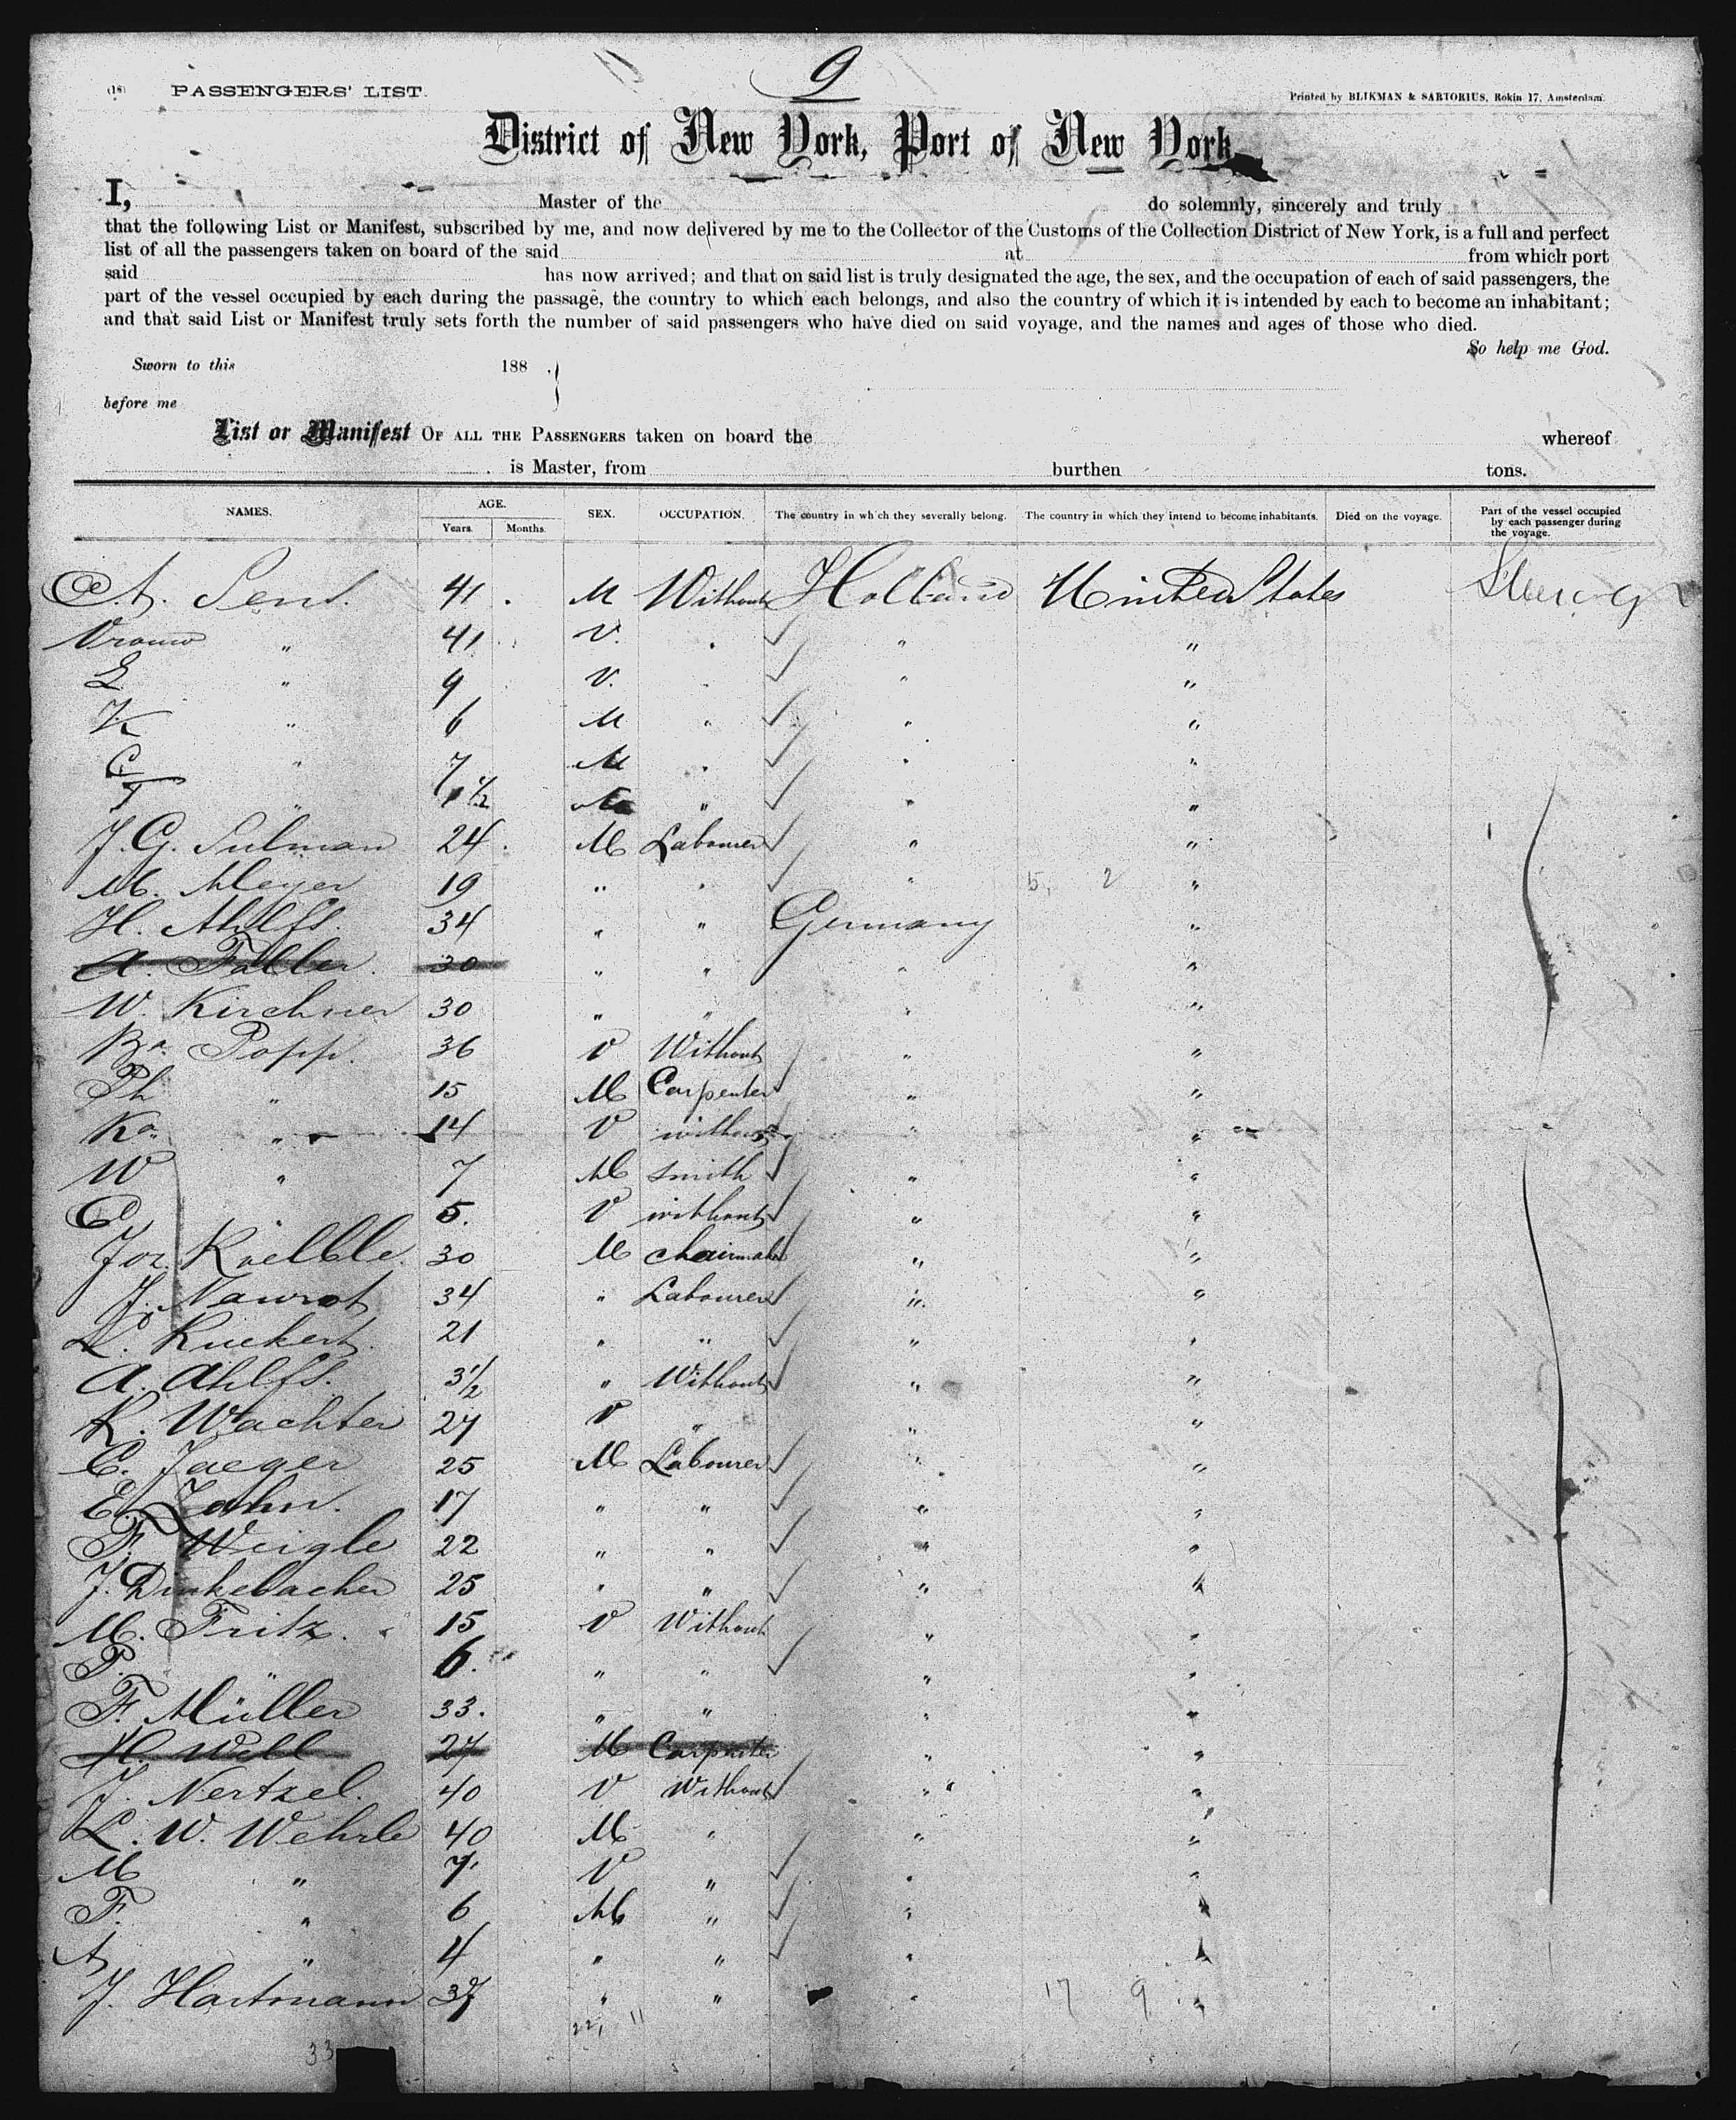 9
(18) PASSENGERS' LIST. Printed by BLIKMAN & SARTORIUS, Rokin 17, Amsterdam.
District of New York, Port of New York
I, Master of the do solemnly, sincerely and truly
that the following List or Manifest, subscribed by me, and now delivered by me to the Collector of the Customs of the Collection District of New York, is a full and perfect
list of all the passengers taken on board of the said at from which port
said has now arrived; and that on said list is truly designated the age, the sex, and the occupation of each of said passengers, the
part of the vessel occupied by each during the passage, the country to which each belongs, and also the country of which it is intended by each to become an inhabitant;
and that said List or Manifest truly sets forth the number of said passengers who have died on said voyage, and the names and ages of those who died.
So help me God.
Sworn to this 188 .
before me
List or Manifest OF ALL THE PASSENGERS taken on board the whereof
is Master, from burthen tons.
NAMES. AGE. Years. Months. SEX. OCCUPATION. The country in which they severally belong. The country in which they intend to become inhabitants. Died on the voyage. Part of the vessel occupied by each passenger during the voyage.
A. Sent. 41 M Without Holland United States
Vrouw " 41 V. " " "
L " 9 V. " " "
K " 6 M " " "
C " 7 M " " "
T " 1 1/2 M " " "
J. G. Sulman 24 M Labourer " "
M. Meyer 19 " " " 5, 2 "
H. Ahlfs. 34 " " Germany "
A. Faller. 30 " " " "
W. Kirchner 30 " " " "
Ba. Popp. 36 V Without " "
Ph " 15 M Carpenter " "
Ka. " 14 V without " "
W " 7 M smith " "
C " 5. V without " "
Joz. Kuelble. 30 M chairmaker " "
J. Nawrot 34 " Labourer " "
L. Ruckert. 21 " " " "
A. Ahlfs. 3 1/2 " Without " "
K. Wachter 27 V " " "
C. Jaeger 25 M Labourer " "
E. Zahn. 17 " " " "
F. Weigle 22 " " " "
J. Dinkelacher 25 " " " "
M. Fritz. 15 V Without " "
P. " 6. " " " "
F. Müller 33. " " " "
H. Well 27 M Carpenter " "
J. Nertzel. 40 V Without " "
L. W. Wehrle 40 M " " "
M " 7 V " " "
F. " 6 M " " "
A " 4 " " " "
J. Hartmann " " " 17 9 "
22, 11
33